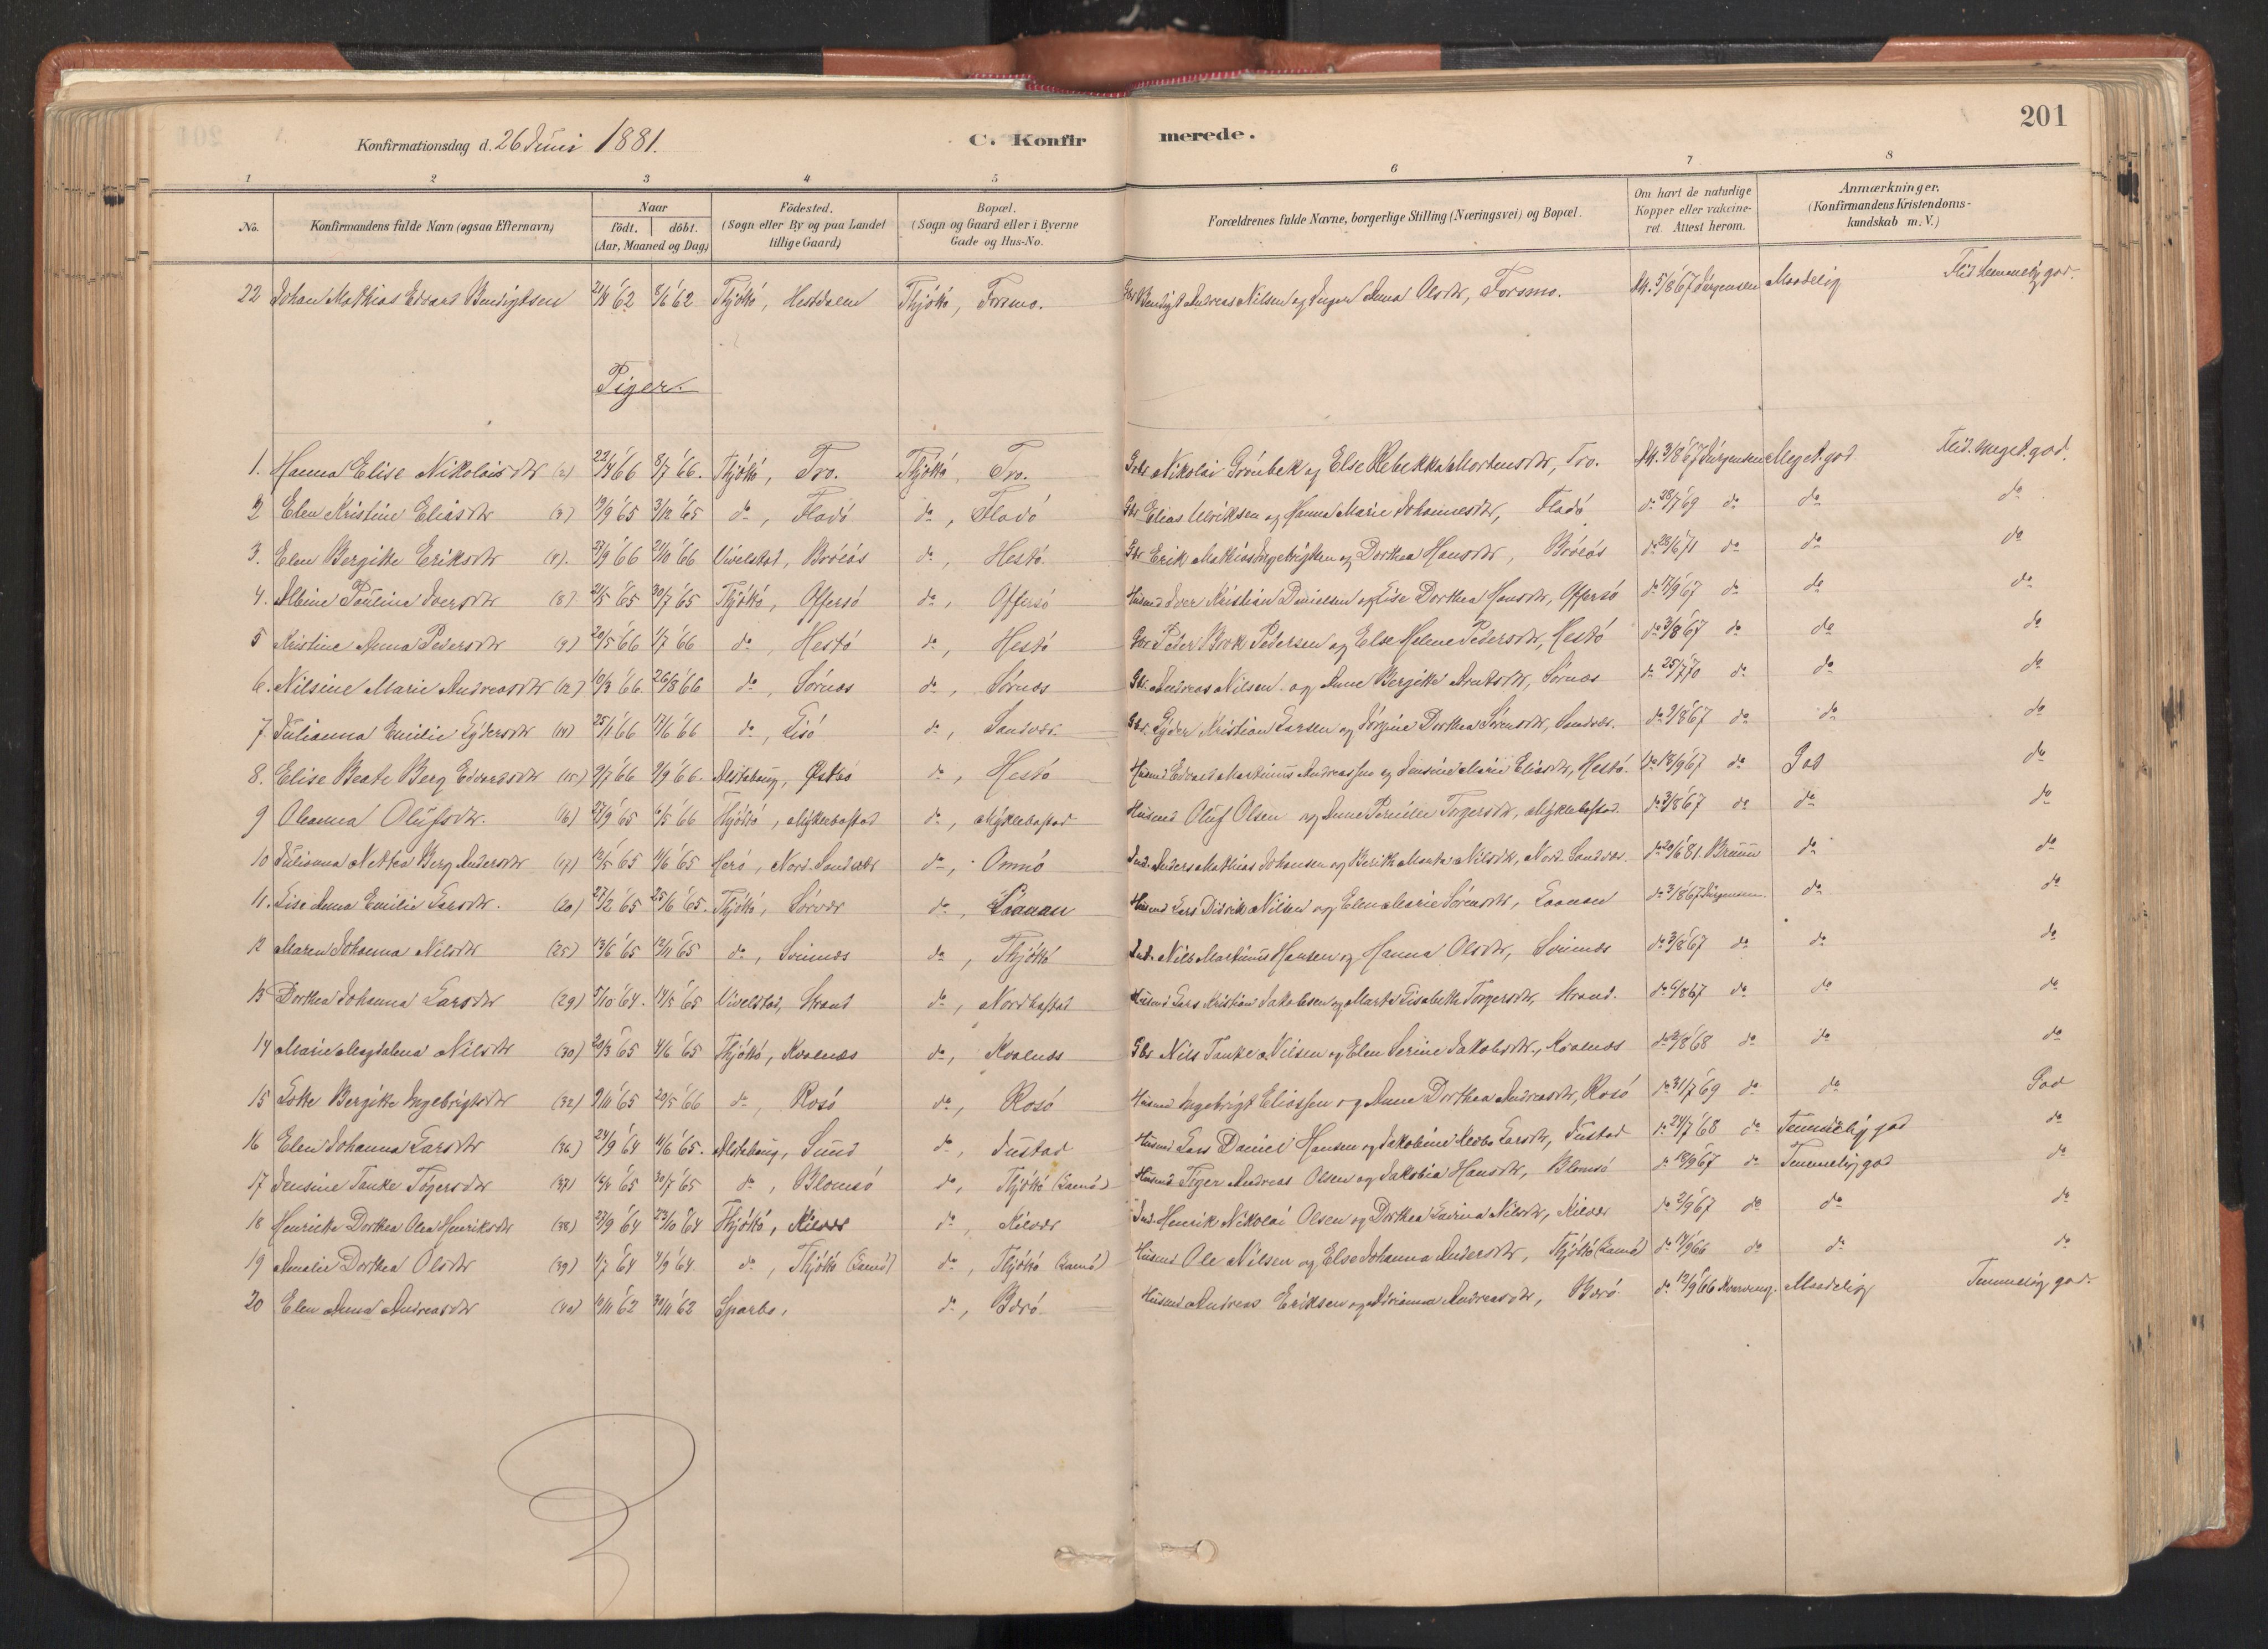 201
Konfirmationsdag d. 26 Juni 1881.
C. Konfirmerede.
1 2 3 4 5 6 7 8
No. Konfirmandens fulde Navn (ogsaa Efternavn) Naar født. døbt. (Aar, Maaned og Dag) Födested. (Sogn eller By og paa Landet tillige Gaard) Bopæl. (Sogn og Gaard eller i Byerne Gade og Hus-No. Forældrenes fulde Navne, borgerlige Stilling (Næringsvei) og Bopæl. Om havt de naturlige Kopper eller vakcineret. Attest herom. Anmærkninger. (Konfirmandens Kristendomskundskab m. V.)
22 Johan Mathias Edvard Bendigtsen 8/6 62 Thjøttø, Hestdalen Thjøttø, Forsmo. Gbr Bendigt Andreas Nilsen og Inger Anna Olsdtr, Forsmo. Att. 5/8 67 Jürgensen Maadelig Flid temmelig god.
Piger.
1. Hanna Elise Nikolaisdtr (2) 22/4 66 8/7 66. Thjøttø, Tro. Thjøttø, Tro. Gbr Nikolai Grønbek og Else Rebekka Mortensdtr, Tro. Att. 3/8 67 Jürgensen Meget god Flid meget god.
2 Elen Kristine Eliasdtr (3) 19/9 65 3/12 65 do, Fladø do, Fladø Gbr Elias Ulriksen og Hanna Marie Johannesdtr, Fladø do 28/7 69 do do do
3. Elen Bergitte Eriksdtr (4). 21/10 66 Vivelstad, Brøløs do, Hestø Gbr Erik Mathias Ingebrigtsen og Dorthea Hansdtr, Brøløs do 23/6 71 do do do
4. Albine Pauline Iversdtr (8) 21/5 65 30/7 65 Thjøttø, Offersø do, Offersø Husmd Iver Kristian Danielsen og Lise Dorthea Hansdtr, Offersø do 17/9 67 do do do
5 Kristine Anna Pedersdtr (9) 20/5 66 1/7 66 do, Hestø do, Hestø Gbr Peder Brok Pedersen og Else Helene Pedersdtr, Hestø do 3/8 67 do do do
6. Nilsine Marie Andreasdtr (12) 10/3 66. 26/8 66 do, Sørnæs do, Sørnæs Gbr. Andreas Nilsen og Anne Bergitte Arntsdtr, Sørnæs do 25/7 70 do do do
7 Julianna Emilie Lydersdtr (14) 25/1 66 17/6 66 do, Tisø do, Sandvær. Gbr. Lyder Kristian Larsen og Jørgine Dorthea Sørensdtr, Sandvær. do 9/8 67 do do do
8. Elise Beate Berg Edvardsdtr (15) 9/7 66 2/9 66. Alstahaug, Østbø do, Hestø Husmd Edvard Martinus Andreassen og Jensine Marie Eliasdtr, Hestø. do 18/9 67 do God do
9 Oleanna Olufsdtr. (16) 27/9 65 6/5 66 Thjøttø, Myklebostad do, Myklebostad Husmd Oluf Olsen og Anne Pernille Torgersdtr, Myklebostad. do 3/8 67 do do do
10 Julianna Nettea Berg Andersdtr (17) 12/5 65 4/6 65 Herø, Nord-Sandvær do, Omnø Ind. Anders Mathias Johansen og Berith Marta Nilsdtr, Nord-Sandvær. do 20/6 81. Bruun do do
11. Lise Anna Emilie Larsdtr. (20) 27/2 65 25/6 65. Thjøttø, Sørvær do, Laanan Husmd Lars Didrik Nilsen og Elen Marie Sørensdtr, Laanan do 3/8 67 Jürgensen. do do
12 Maren Johanna Nilsdtr (25) 13/6 65 12/11 65 do, Svinnæs do, Thjøttø Ind. Nils Martinus Hansen og Hanna Olsdtr, Svinnæs do 3/8 67 do do do
13 Dorthea Johanna Larsdtr (29) 5/10 64. 14/5 65 Vivelstad, Strand do, Nordbostad Husmd Lars Kristian Jakobsen og Marta Lisabeth Torgersdtr, Strand. do 6/8 67 do do do
14 Marie Magdalena Nilsdtr (30) 20/3 65 4/6 65 Thjøttø, Kvalnæs do, Kvalnæs Gbr Nils Tanke Nilsen og Elen Serine Jakobsdtr, Kvalnæs do 2/8 68 do do do
15 Lotte Bergitte Ingebrigtsdtr (32) 9/11 65 20/5 66 do, Rosø do, Rosø Husmd Ingebrigt Eliassen og Anne Dorthea Andreasdtr, Rosø do 31/7 69 do do God
16 Elen Johanna Larsdtr (36) 24/9 64 11/6 65. Alstahaug, Sund do, Tustad Husmd Lars Daniel Hansen og Jakobine Larsdtr, Tustad do 24/7 68 do Temmelig god do
17 Jensine Tanke Tøgersdtr (37) 65 30/7 65 do, Blomsø do, Thjøttø (Ramø) Husmd Tøger Andreas Olsen og Jakobia Hansdtr, Blomsø do 18/9 67 do Temmelig god do
18 Henriette Dorthea Olea Henriksdtr (38) 27/9 64 23/10 64 Thjøttø, Kilvær do, Kilvær Ind. Henrik Nikolai Olsen og Dorthea Lovina Nilsdtr, Kilvær do 2/9 67 do do do
19 Amalie Dorthea Olsdtr (39) 1/7 64 4/9 64 do, Thjøttø (Ramø) do, Thjøttø (Ramø) Husmd Ole Nilsen og Else Johanna Andersdtr, Thjøttø (Ramø) do 14/9 66 do do do
20 Elen Anna Andreasdtr (40) 10/11 62 30/11 62 Sparbo, do, Bærø Husmd Andreas Eriksen og Adrianna Andreasdtr, Bærø do 12/9 66 Maadelig Temmelig god.